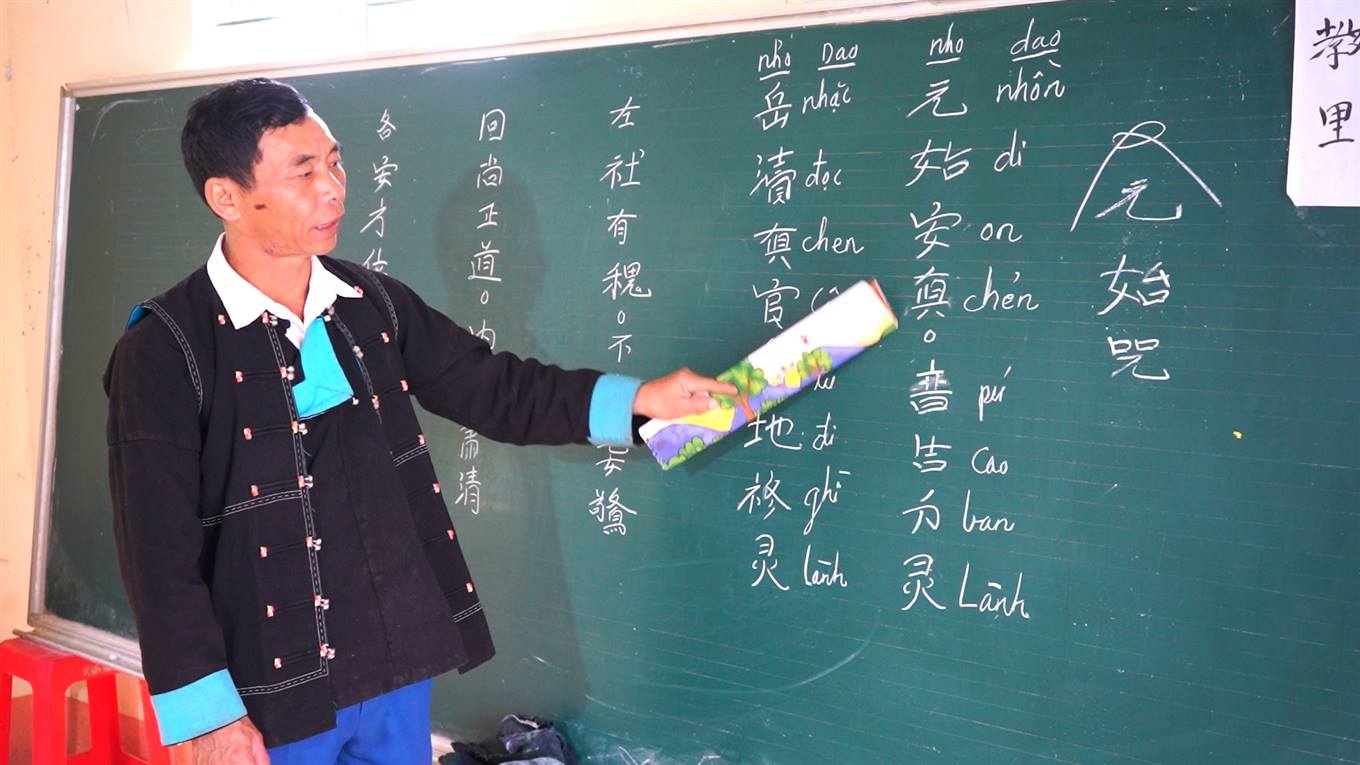 教里
元始咒
nho dao
元 nhôn
始 di
安 on
真 chén
。
普 pú
告 cao
万 ban
灵 Lành
nhỏ Dao
岳 nhạc
瀆 đọc
真 chen
官
地 đi
ghì
灵 lành
左社有稷。不妄驚
回尚正道。内肅清
各安方位